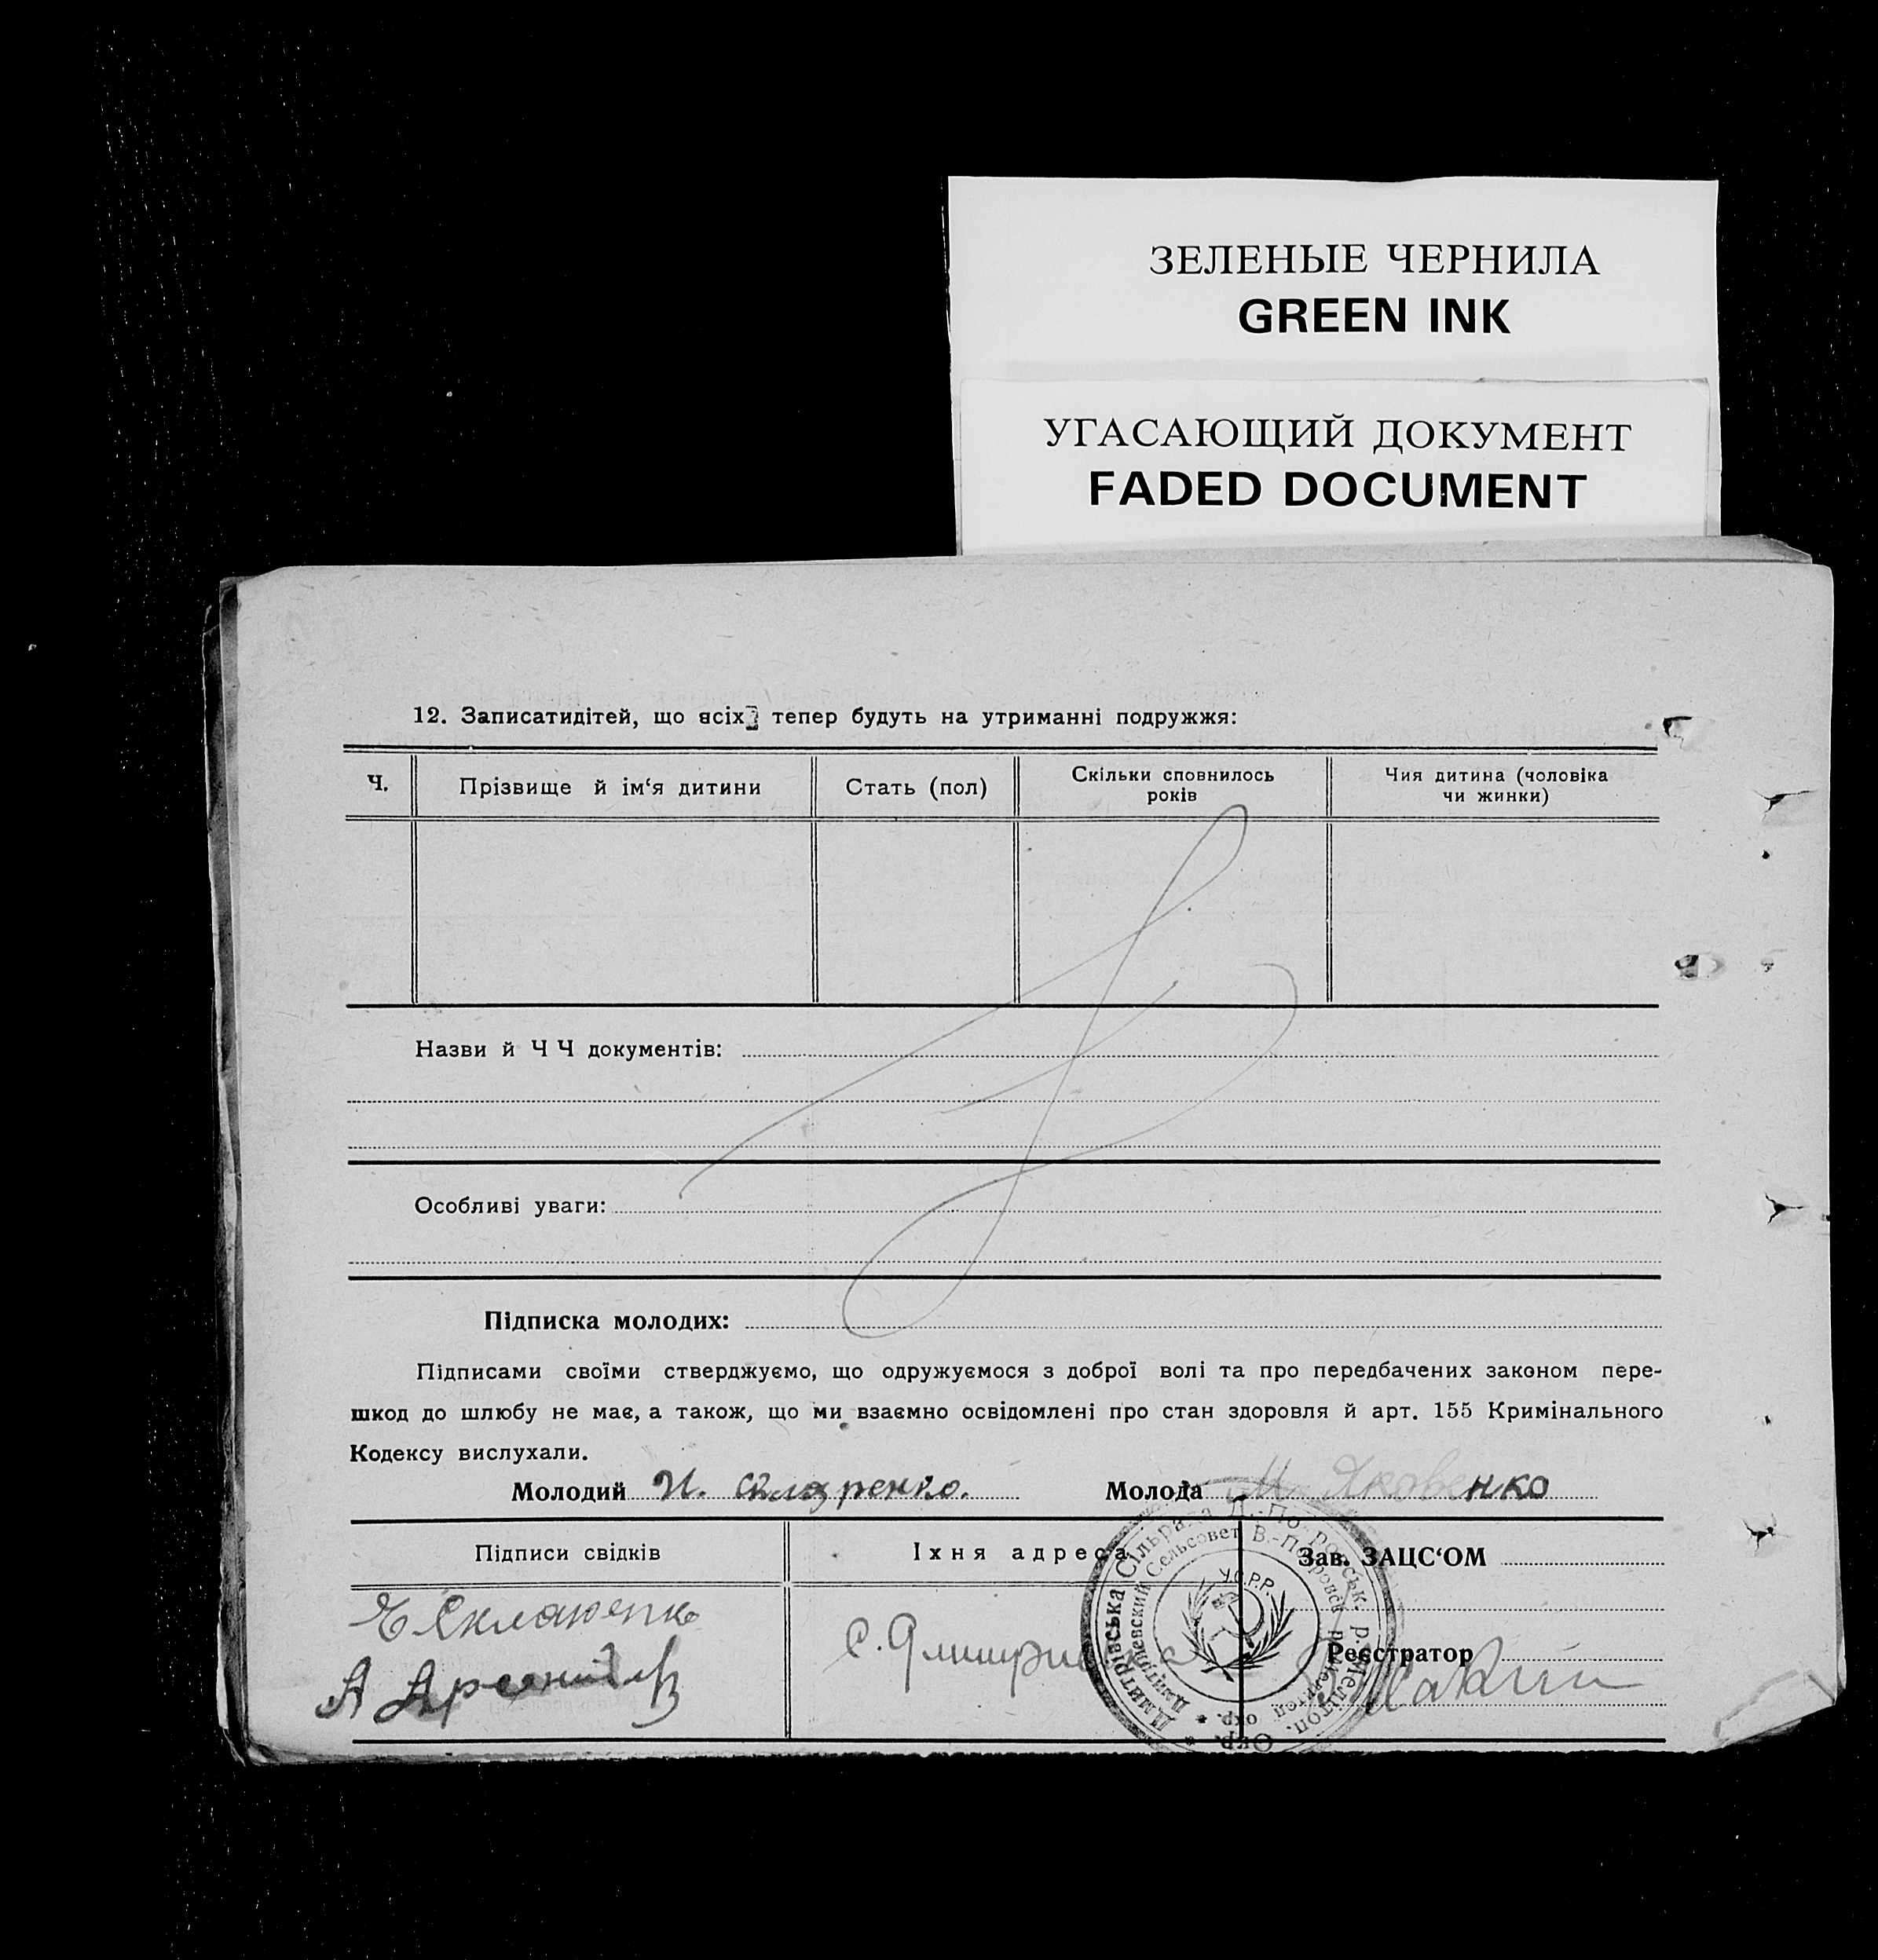 ЗЕЛЕНЫЕ ЧЕРНИЛА
GREEN INK
УГАСАЮЩИЙ ДОКУМЕНТ
FADED DOCUMENT
12. Записатидітей, що всіх тепер будуть на утриманні подружжя:
Ч.
Прізвище й ім‘я дитини
Стать (пол)
Скільки сповнилось
років
Чия дитина (чоловіка
чи жинки)
Назви й Ч Ч документів:
Особливі уваги:
Підписка молодих:
Підписами своїми стверджуємо, що одружуємося з доброї волі та про передбачених законом пере-
шкод до шлюбу не має, а також, що ми взаємно освідомлені про стан здоровля й арт. 155 Кримінального
Кодексу вислухали.
Молодий И. Скляренко. Молода М Яковенко
Підписи свідків
Їхня адреса
Зав. ЗАЦС‘ОМ
А
С.
Реєстратор
Дмитрівська Сільрада В.-Покровськ. р. Мелітоп. Окр.
Дмитриевский Сельсовет В.-Покровск р. Мелитоп окр.
У.С.Р.Р.